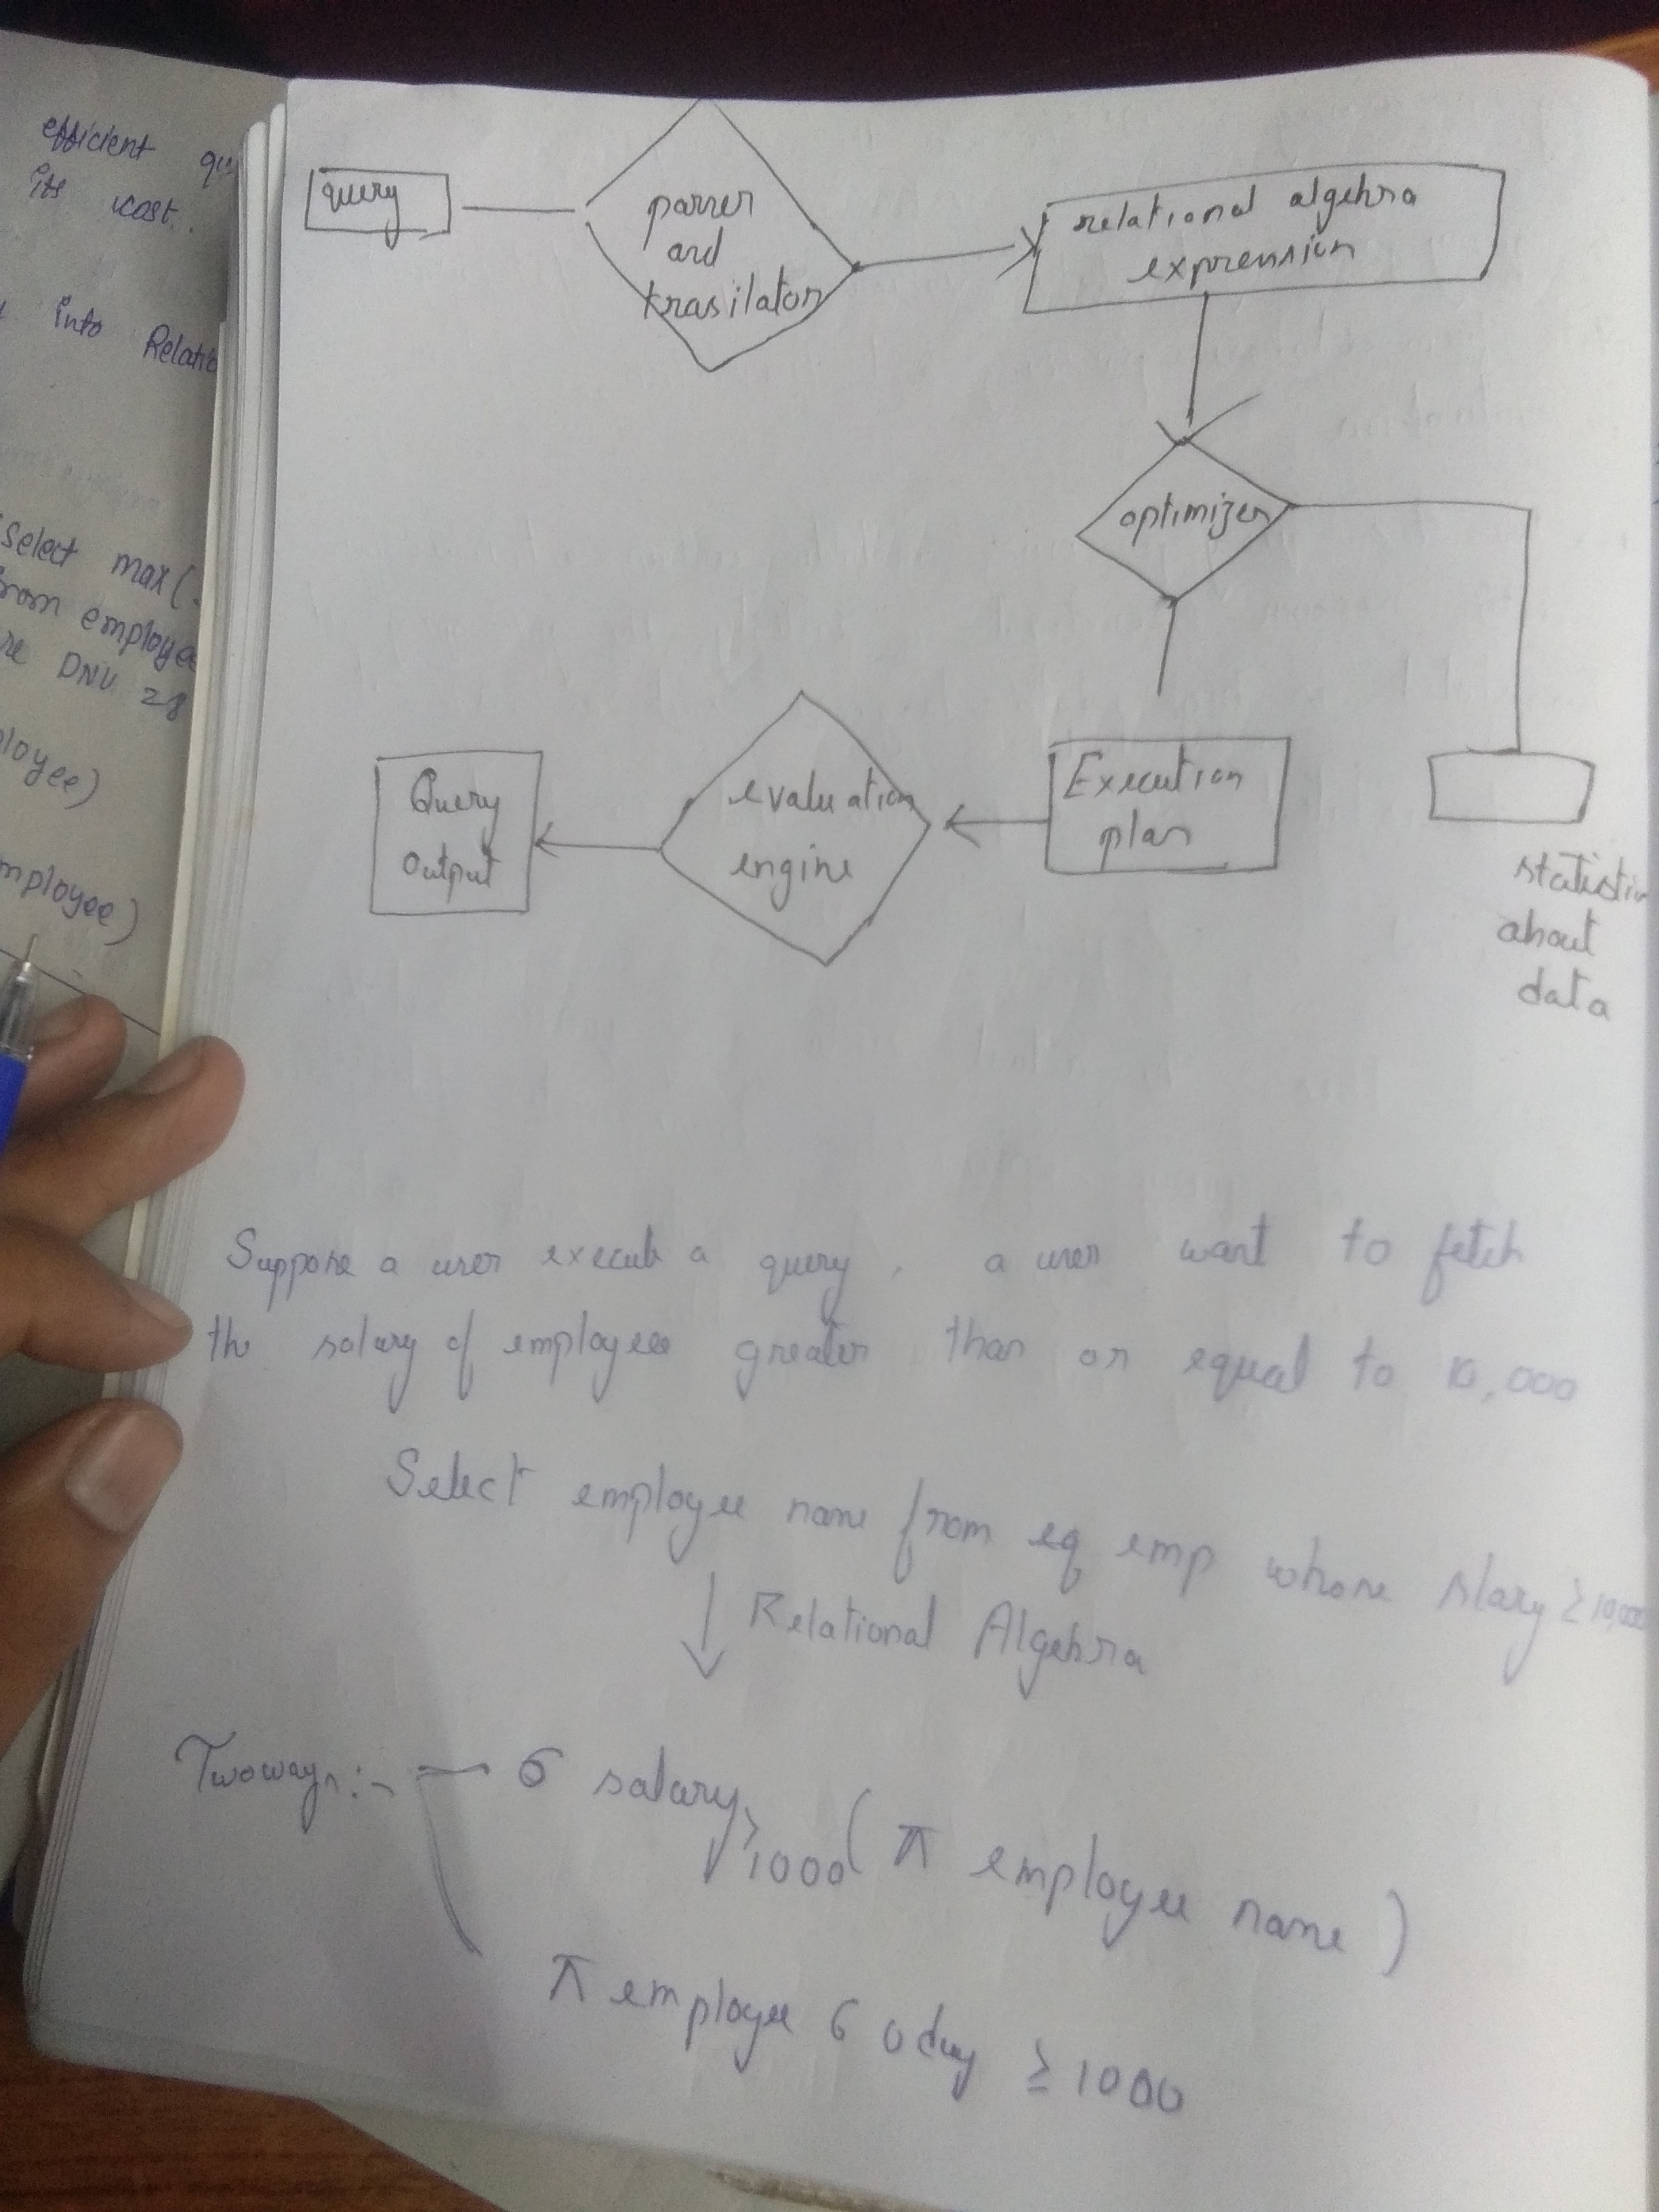 efficient
its cost.
into Relatio
select max(
from employee
re DNU = 8
ployee)
mployee)
query
parser
and
trasilator
relational algebra
expression
optimizer
Query
output
evaluation
engine
Execution
plan
statistic
about
data
Suppose a user execute a query, a user want to fetch
the salary of employees greater than or equal to 10,000
Select employee name from eq emp whose slary ≥ 10,000
Relational Algebra
Two ways:- σ salary ≥ 1000 ( π employee name )
π employee σ ≥ 1000